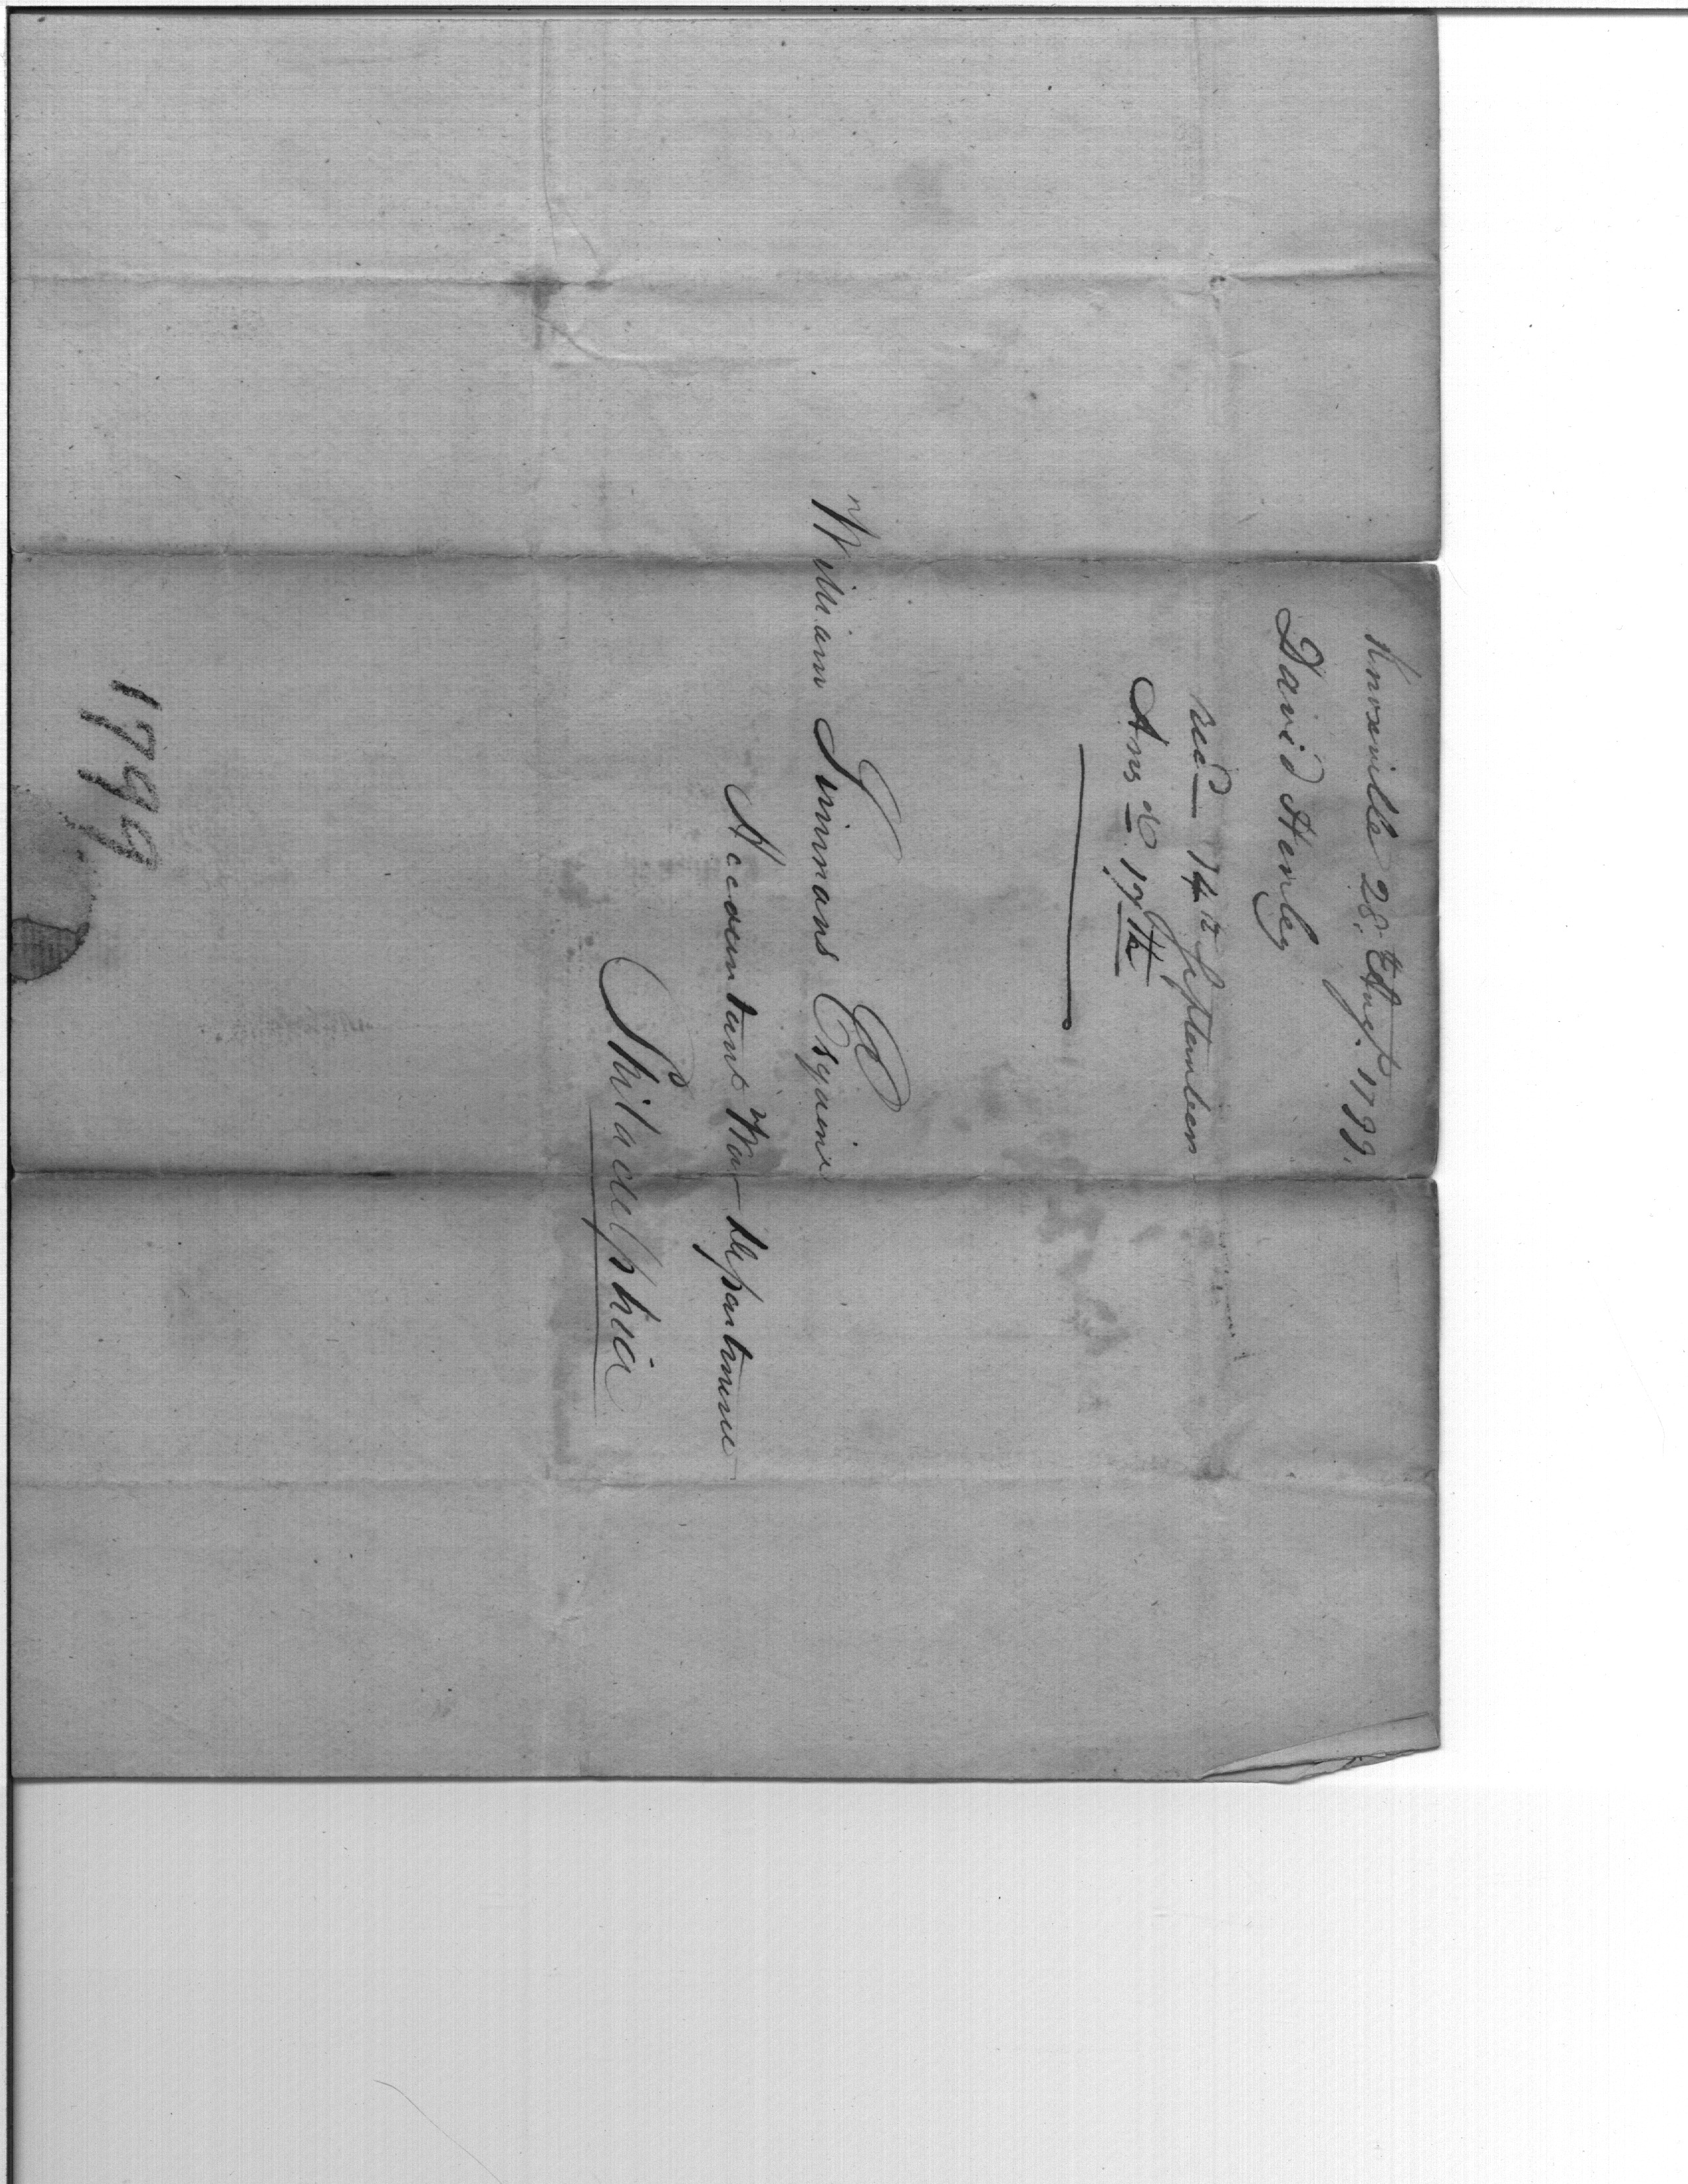 Knoxville 28th Augt. 1799.
David Henley
recd 14th September
Ansd 17th
William Simmons Esquire
Accountant War department
Philadelphia
1799